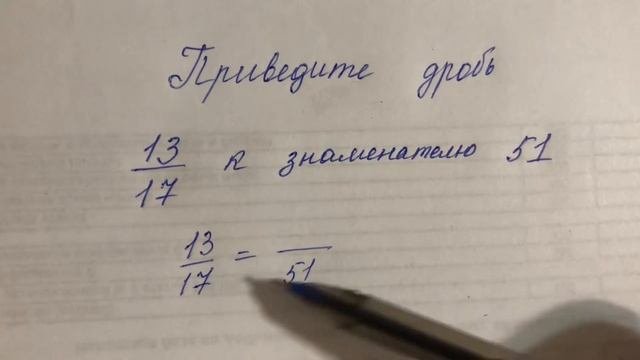 Приведите дробь
13/17 к знаменателю 51
13/17 = /51